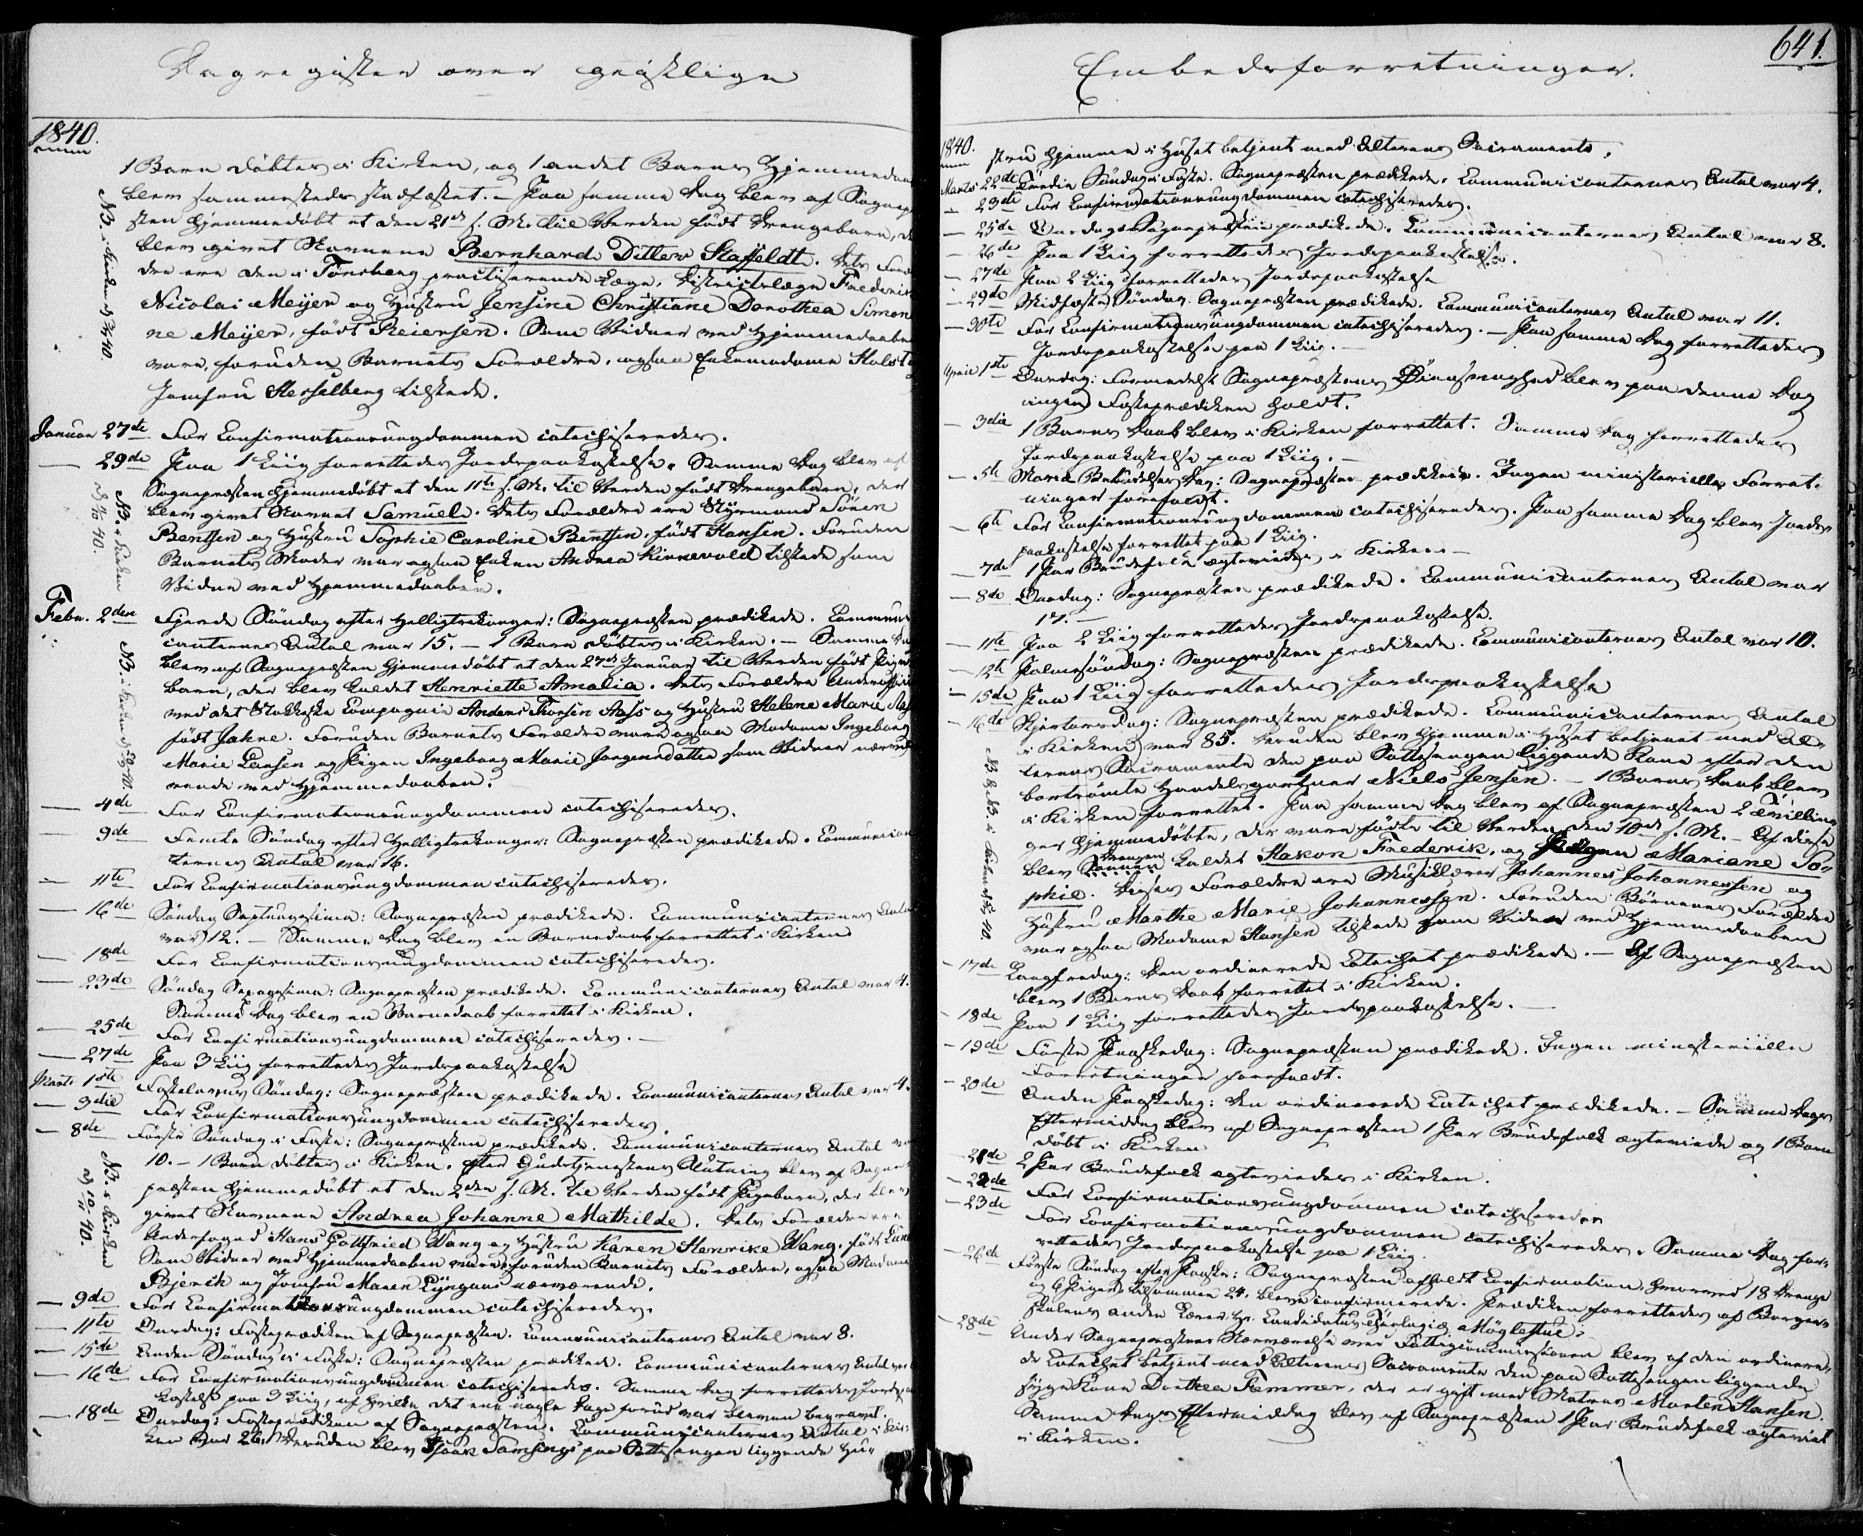 Dagregister over geistlige
1840.
1 Barn døbtes i Kirken, og 1 andet Barns Hjemmedaab
blev sammesteds stadfæstet. – Paa samme Dag blev af Sognepræ
sten hjemmedøbt et den 21de s. M. til Verden født Drengebarn, der
blev givet Navnene Bernhard Ditlev Staffeldt. Dets Foræl
dre ere den i Tønsberg practiserende Læge, Districtslæge Frederik
Nicolai Meijer og Hustru Jensine Christiane Dorothea Simon
ne Meijer, født Reiersen. Som Vidner ved Hjemmedaaben
vare, foruden Barnets Forældre, ogsaa Enkemadame Holst
Jomfru Hesselberg tilstede.
NB. i Kirken d. 40
Januar 27de For Confirmationsungdommen catechiseredes.
— 29de Paa 1 Liig forrettedes Jordspaakastelse. Samme Dag blev af
Sognepræsten hjemmedøbt et den 11te s. M. til Verden født Drengebarn, der
blev givet Navnet Samuel. Dets Forældre ere Styrmand Sören
Bentsen og Hustru Sophie Caroline Bentsen, født Hansen. Foruden
Barnets Moder var ogsaa Enken Andrea Rinnevold tilstede som
Vidne ved Hjemmedaaben.
NB. i Kirken d. 40.
Febr. 2den Fjerde Søndag efter Helligtrekonger: Sognepræsten prædikede. Communi
canternes Antal var 15. – 1 Barn døbtes i Kirken. – Samme Dag
blev af Sognepræsten hjemmedøbt et den 27de Januar til Verden født Pige
barn, der blev kaldet Henriette Amalia. Dets Forældre
med det Stokkeske Compagnie Anders Thorsen Aass og Hustru Helene Marie Aass
født Jahre. Foruden Barnets Forældre vare ogsaa Madame Ingeborg
Marie Larsen og Pigen Ingeborg Marie Jørgensdatter som Vidner nærvæ
rende ved Hjemmedaaben.
NB. i Kirken d. 40.
— 4de For Confirmationsungdommen catechiseredes.
— 9de Femte Søndag efter Helligtrekonger: Sognepræsten prædikede. Communican
ternes Antal var 16.
— 11te For Confirmationsungdommen catechiseredes.
— 16de Søndag Septuagesima: Sognepræsten prædikede. Communicanternes Antal
var 12. – Samme Dag blev en Barnedaab forrettet i Kirken
— 18de For Confirmationsungdommen catechiseredes.
— 23de Søndag Sexagesima: Sognepræsten prædikede. Communicanternes Antal var 4.
Samme Dag blev en Barnedaab forrettet i Kirken.
— 25de For Confirmationsungdommen catechiseredes. –
— 27de Paa 3 Liig forrettedes Jordspaakastelse
Marts 1ste Fastelavns Søndag: Sognepræsten prædikede. Communicanternes Antal var 4.
— 3die For Confirmationsungdommen catechiseredes.
— 8de Første Søndag i Faste: Sognepræsten prædikede. Communicanternes Antal var
10. – 1 Barn døbtes i Kirken. Efter Gudstjenestens Slutning blev af Sogne
præsten hjemmedøbt et den 2den s. M. til Verden født Pigebarn, der blev
givet Navnene Andrea Johanne Mathilde. Dets Forældre ere
Underfoged Hans Gottfried Wang og Hustru Karen Henrike Wang, født Lund
Som Vidner ved Hjemmedaaben vare, foruden Barnets Forældre, ogsaa Madame
Bjerck og Jomfru Maren Lÿngaas nærværende.
NB. i Kirken d. 40.
— 9de For Confirmationsungdommen catechiseredes.
— 11te Onsdag: Fasteprædiken af Sognepræsten. Communicanternes Antal var 8.
— 15de Anden Søndag i Faste: Sognepræsten prædikede. Communicanternes Antal var
— 16de For Confirmationsungdommen catechiseredes. Samme Dag forrettedes Jordspaa
kastelse paa 3 Liig, af hvilke det ene nogle Dage forud var bleven begravet.
— 18de Onsdag: Fasteprædiken af Sognepræsten. Communicanternes Antal i Kir-
ken var 26. Desuden blev Isaak Samsings paa Sottesengen liggende Hu-
Embedsforretninger.
641.
1840.
stru hjemme i Huset betjent med Alterens Sacramente.
Marts 22de Tredie Søndag i Faste. Sognepræsten prædikede. Communicanternes Antal var 4.
— 23de For Confirmationsungdommen catechiseredes.
— 25de Onsdag: Sognepræsten prædikede. Communicanternes Antal var 8.
— 26de Paa 1 Liig forrettedes Jordspaakastelse.
— 27de Paa 2 Liig forrettedes Jordspaakastelse
— 29de Midfaste Søndag. Sognepræsten prædikede. Communicanternes Antal var 11.
— 30te For Confirmationsungdommen catechiseredes. – Paa samme Dag forrettedes
Jordspaakastelse paa 1 Liig. –
April 1ste Onsdag: Formedelst Sognepræstens Øiensvaghed blev paa denne Dag
ingen Fasteprædiken holdt.
— 3die 1 Barns Daab blev i Kirken forrettet. Samme Dag forrettedes
Jordspaakastelse paa 1 Liig. –
— 5te Mariæ Bebudelses Dag: Sognepræsten prædikede. Ingen ministerielle Forret-
ninger forefaldt.
— 6te For Confirmationsungdommen catechiseredes. Paa samme Dag blev Jords-
paakastelse forrettet paa 1 Liig.
— 7de 1 Par Brudefolk ægteviedes i Kirken. –
— 8de Onsdag: Sognepræsten prædikede. Communicanternes Antal var
17. –
— 11te Paa 2 Liig forrettedes Jordspaakastelse.
— 12te Palmesøndag: Sognepræsten prædikede. Communicanternes Antal var 10.
— 15de Paa 1 Liig forrettedes Jordspaakastelse
— 16de Skjertorsdag: Sognepræsten prædikede. Communicanternes Antal
i Kirken var 85. Desuden blev hjemme i Huset betjent med Al-
terens Sacramente den paa Sottesengen liggende Kone efter den
bortrømte Handelsgartner Niels Jensen. – 1 Barns Daab blev
i Kirken forrettet. Paa samme Dag blev af Sognepræsten 2 Tvillin-
ger hjemmedøbte, der vare fødte til Verden den 10de s. M. – Af disse
blev Drengen kaldet Hakon Frederik, og Pigen Mariane So-
phie. Deres Forældre ere Musiklærer Johannes Johannessen og
Hustru Marthe Marie Johannessen. Foruden Børnenes Forældre
var ogsaa Madame Hansen tilstede som Vidne ved Hjemmedaaben
NB. & NB. i Kirken d. 40.
— 17de Langfredag: Den ordinerede Catechet prædikede. – Af Sognepræsten
blev 1 Barns Daab forrettet i Kirken.
— 18de Paa 1 Liig forrettedes Jordspaakastelse. –
— 19de Første Paaskedag: Sognepræsten prædikede. Ingen ministerielle
Forretninger forefaldt.
— 20de Anden Paaskedag: Den ordinerede Catechet prædikede. – Samme Dags
Eftermiddag blev af Sognepræsten 1 Par Brudefolk ægteviede og 1 Barn
døbt i Kirken
— 21de 2 Par Brudefolk ægteviedes i Kirken.
— 22de For Confirmationsungdommen catechiseredes
— 23de For Confirmationsungdommen catechiseredes. Samme Dag for-
rettedes Jordspaakastelse paa 1 Liig.
— 26de Første Søndag efter Paaske: Sognepræsten afholdt Confirmation, hvorved 18 Drenge
og 6 Piger, tilsammen 24, bleve confirmerede. Prædiken forrettedes af Borger-
skolens anden Lærer Hr. Candidatus Theologiæ Møglestue.
— 28de Under Sognepræstens Nærværelse over Fattigcommissionen blev af den ordinere-
de Catechet betjent med Alterens Sacramente den paa Sottesengen liggende
syge Kone Dorthea Fæmmer, der er gift med Matros Morten Hansen.
Samme Dags Eftermiddag blev af Sognepræsten 1 Par Brudefolk ægteviet
i Kirken.